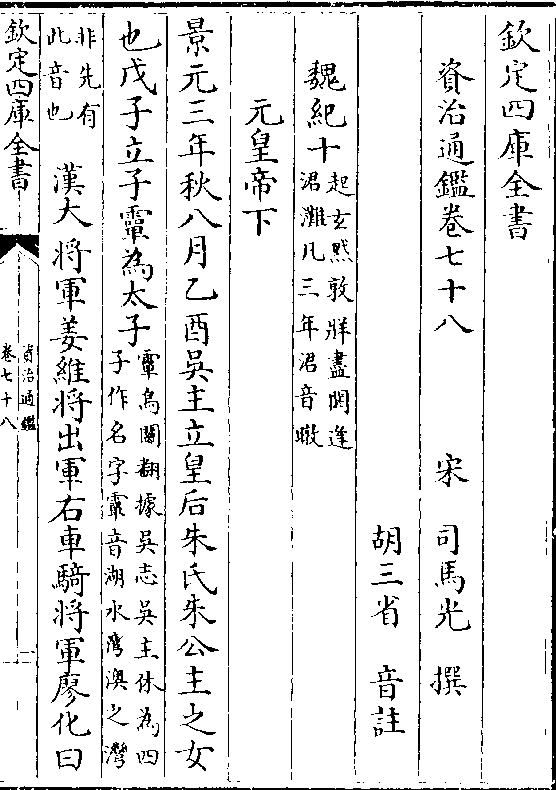 欽定四庫全書
資治通鑑卷七十八
宋 司馬光 撰
胡三省 音註
魏紀十
起玄黓敦牂盡閼逢
涒灘凡三年涒音暾
元皇帝下
景元三年秋八月乙酉吳主立皇后朱氏朱公主之女
也戊子立子𩅦為太子
𩅦烏關翻據吳志吳主休為四
子作名字𩅦音湖水灣澳之灣
非先有
此音也
漢大將軍姜維將出軍右車騎將軍廖化曰
欽定四庫全書
資治通鑑
卷七十八
一